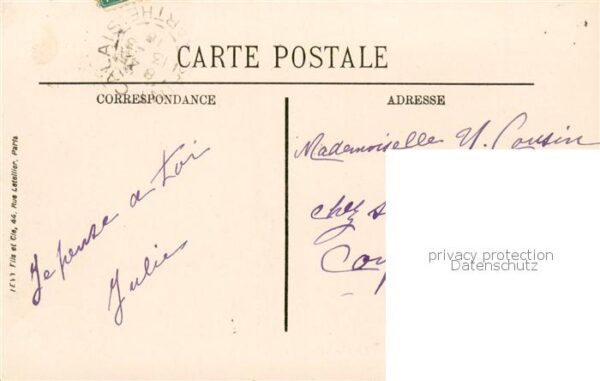 CARTE POSTALE
CORRESPONDANCE
ADRESSE
Je pense a toi
Julie
Mademoiselle Y. Cousin
chez
privacy protection
Datenschutz
Fils et Cie, 44, Rue Letellier, Paris
CALAIS